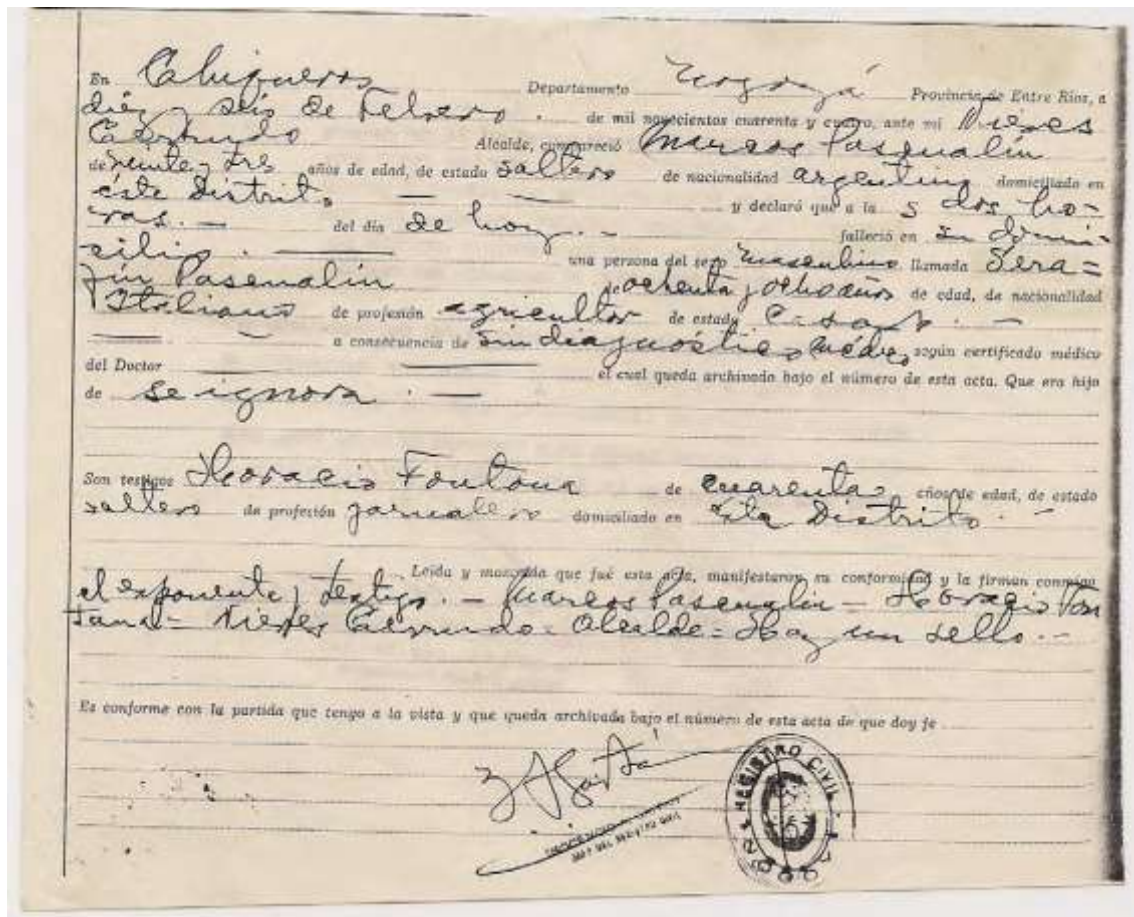 En Chiqueros Departamento Nogoyá Provincia de Entre Ríos, a
diéz y seis de Febrero . de mil novecientos cuarenta y cuatro, ante mi Nieves
Alcalde, compareció Marcos Pasqualin
de veinte y tres años de edad, de estado soltero de nacionalidad argentino domiciliado en
éste Distrito — — y declaró que a la s dos ho-
ras. — del día de hoy. — falleció en su domi-
cilio. — una persona del sexo masculino, llamada Sera=
fín Pascualin de ochenta y ocho años de edad, de nacionalidad
Italiano de profesión agricultor de estado Casado. —
— a consecuencia de Sin diagnóstico médico, según certificado médico
del Doctor — — el cual queda archivado bajo el número de esta acta. Que era hijo
de se ignora . —
Son testigos Horacio Fontana de cuarenta años de edad, de estado
soltero de profesión jornalero domiciliado en este Distrito. —
Leída y mostrada que fué esta acta, manifestaron su conformidad y la firman conmigo
el exponente y testigo. — Marcos Pascualin — Horacio Fon
tana = Nieves = Alcalde = Hay un sello. —
Es conforme con la partida que tengo a la vista y que queda archivada bajo el número de esta acta de que doy fe
REGISTRO CIVIL